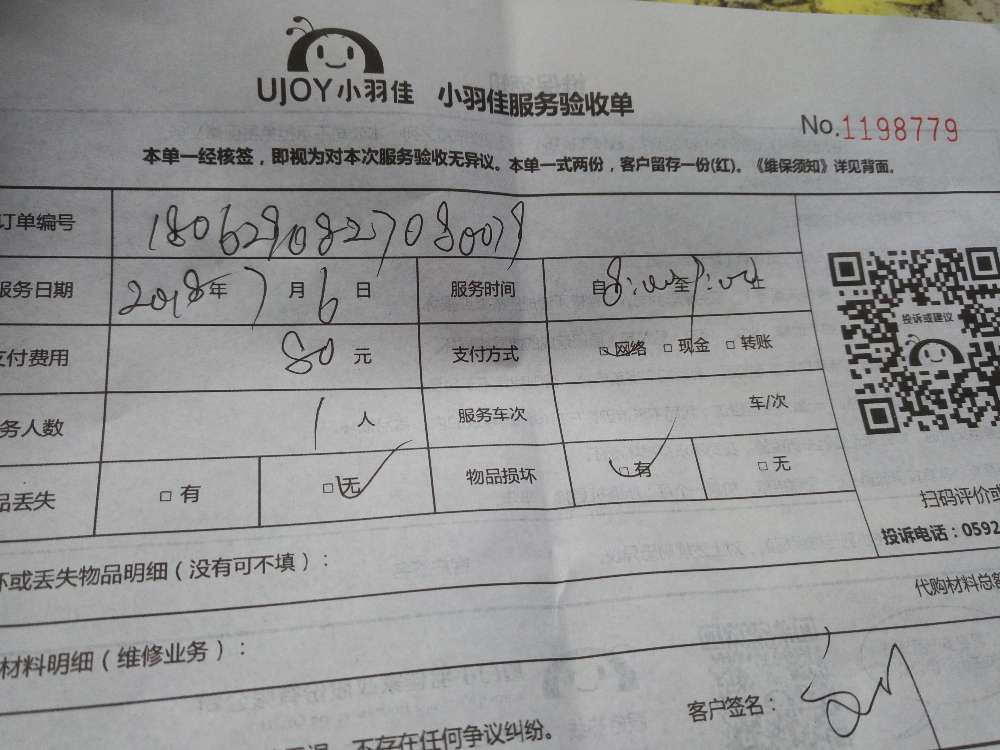 UJOY小羽佳 小羽佳服务验收单
No.1198779
本单一经核签，即视为对本次服务验收无异议。本单一式两份，客户留存一份(红)。《维保须知》详见背面。
订单编号 18062908237080079
服务日期 2018年7月6日 服务时间 自8:00至9:00止
支付费用 80元 支付方式 □网络 □现金 □转账
务人数 1人 服务车次 车/次
品丢失 □有 □无 物品损坏 □有 □无
投诉或建议
扫码评价或
投诉电话：0592
坏或丢失物品明细（没有可不填）：
代购材料总额
材料明细（维修业务）：
客户签名：
不存在任何争议纠纷。